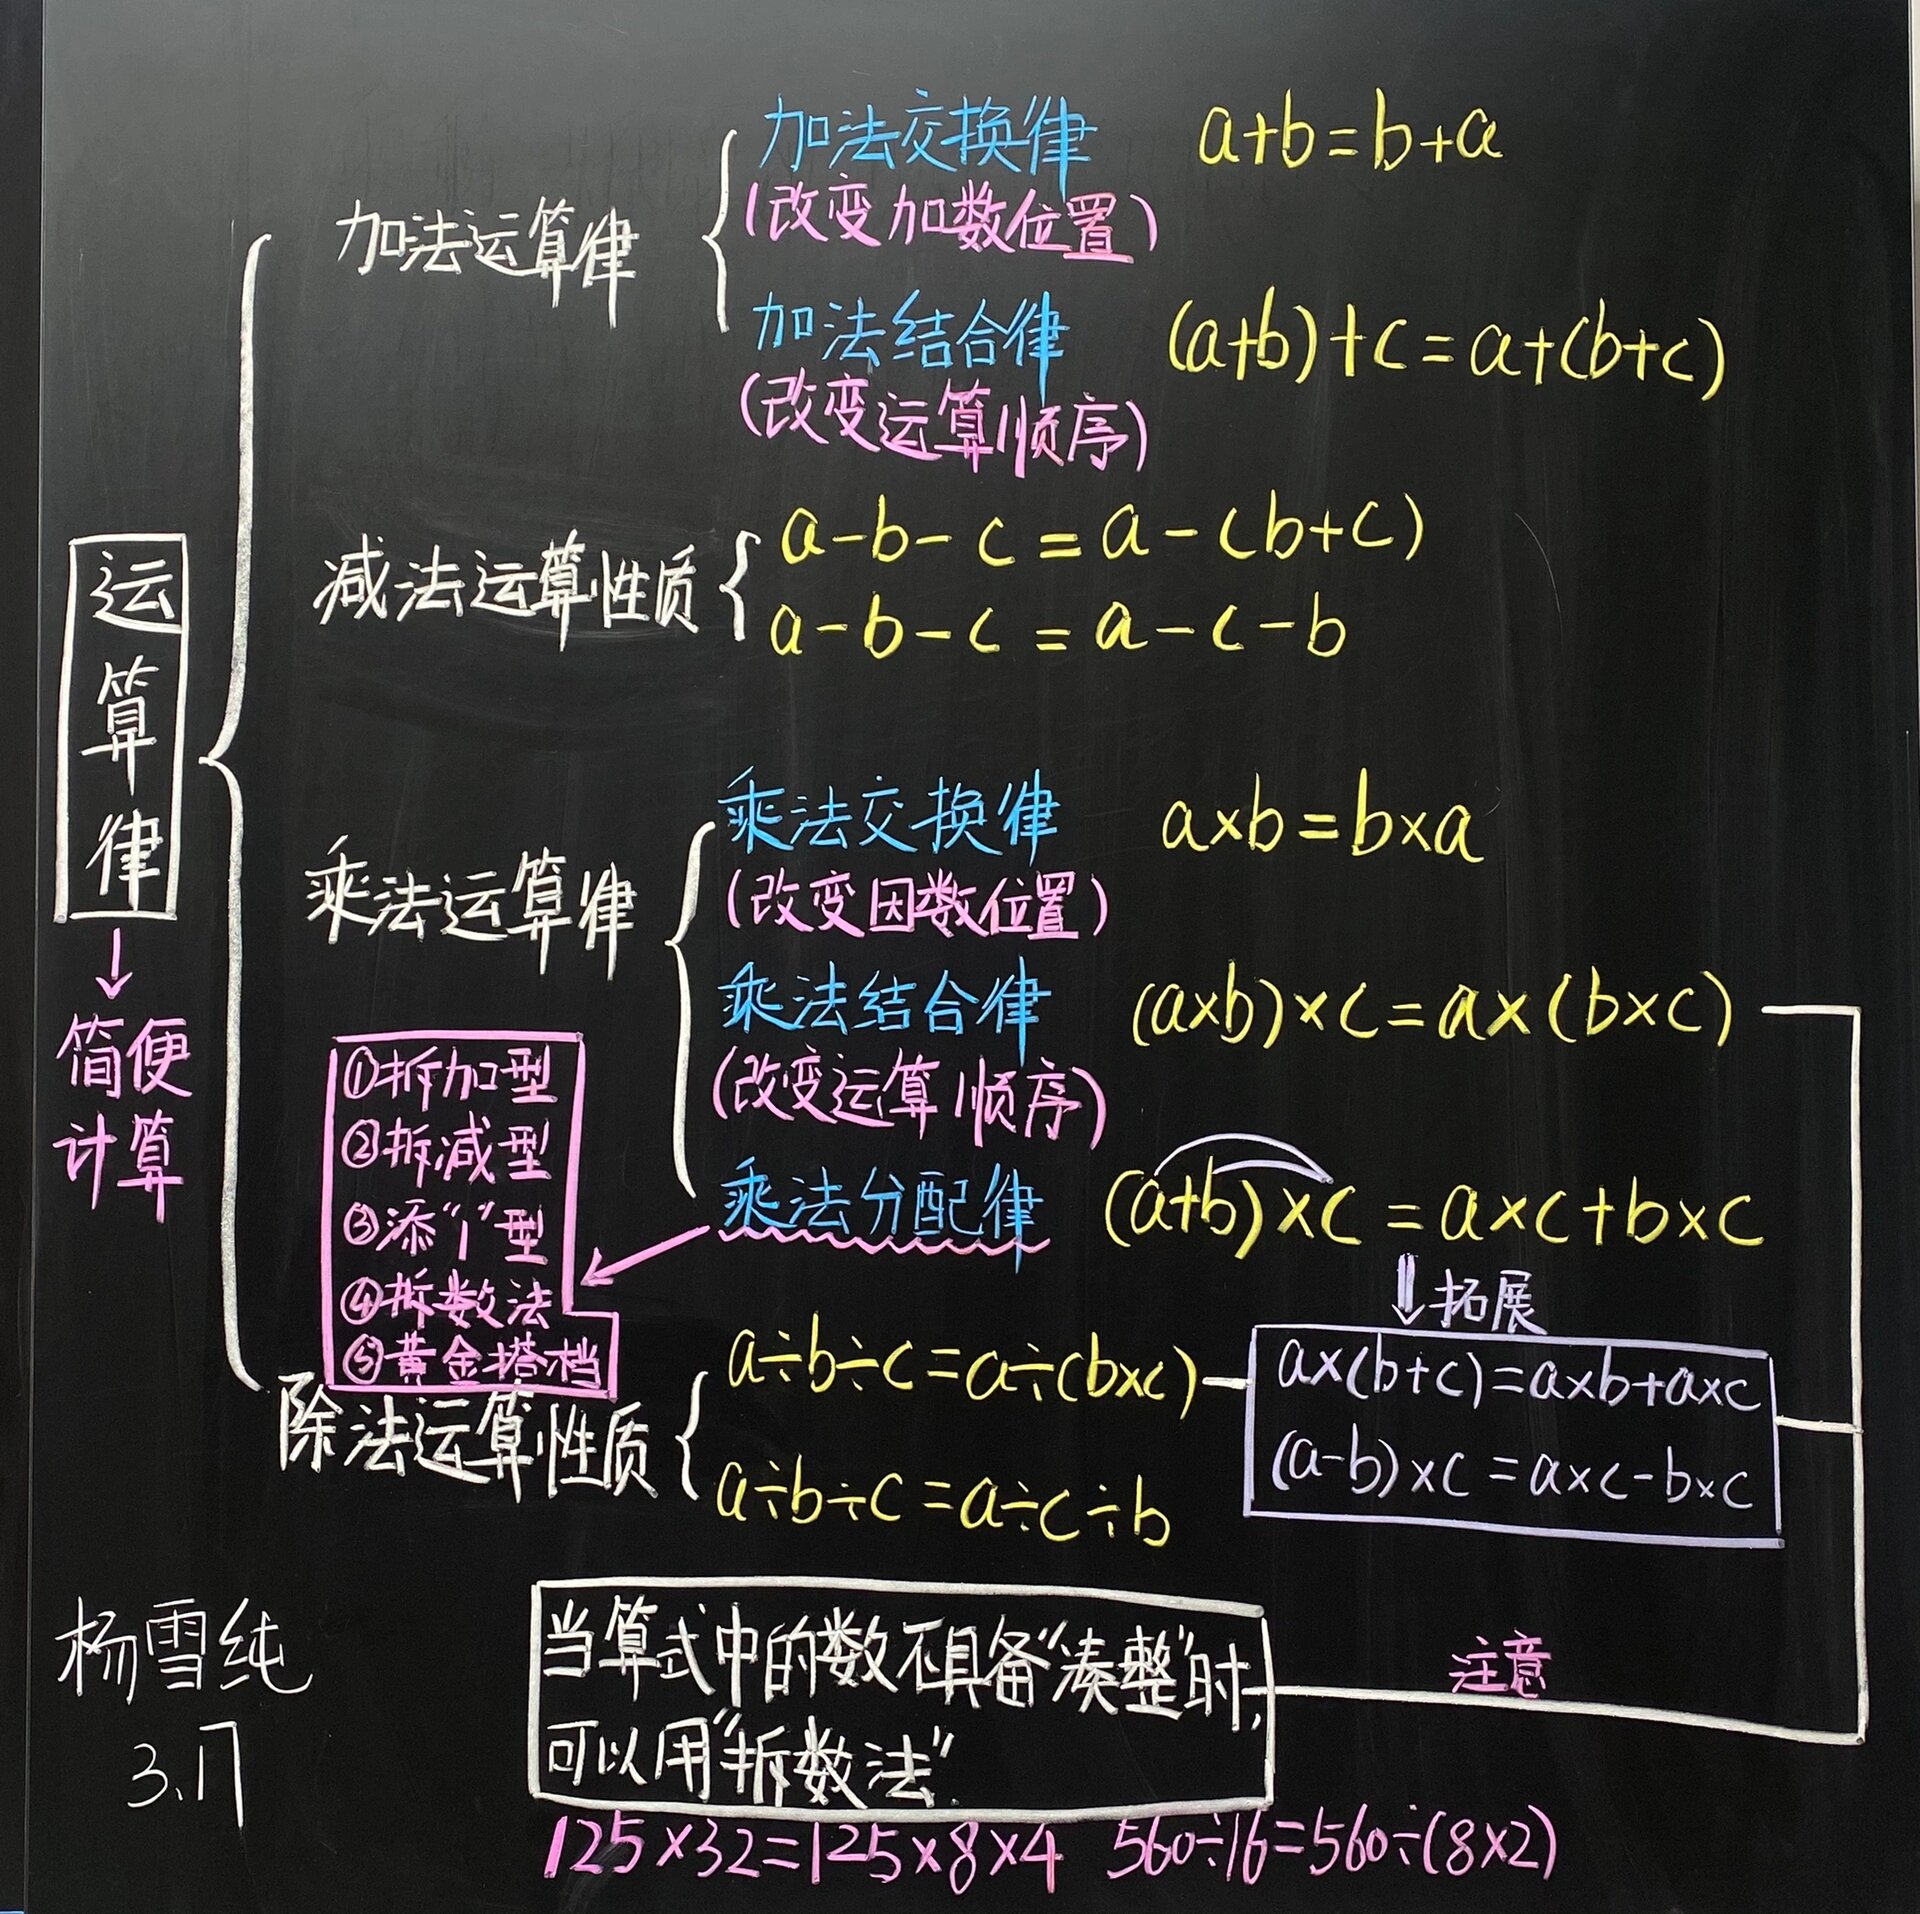 运算律
简便
计算
加法运算律
加法交换律 a+b=b+a
(改变加数位置)
加法结合律 (a+b)+c=a+(b+c)
(改变运算顺序)
减法运算性质
a-b-c=a-(b+c)
a-b-c=a-c-b
乘法运算律
乘法交换律 a×b=b×a
(改变因数位置)
乘法结合律 (a×b)×c=a×(b×c)
(改变运算顺序)
乘法分配律 (a+b)×c=a×c+b×c
拓展
a×(b+c)=a×b+a×c
(a-b)×c=a×c-b×c
①拆加型
②拆减型
③添“1”型
④拆数法
⑤黄金塔档
除法运算性质
a÷b÷c=a÷(b×c)
a÷b÷c=a÷c÷b
当算式中的数不具备“凑整”时,
可以用“拆数法”.
注意
125×32=125×8×4 560÷16=560÷(8×2)
杨雪纯
3.17